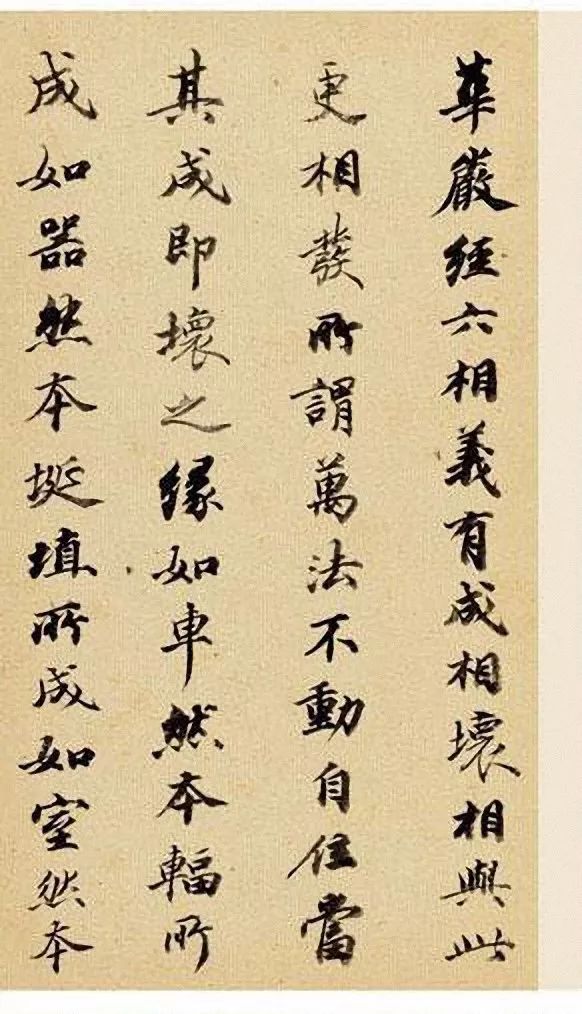 華嚴經六相義有成相壞相與此
更相發所謂萬法不動自位當
其成即壞之緣如車然本輻所
成如器然本埏埴所成如室然本